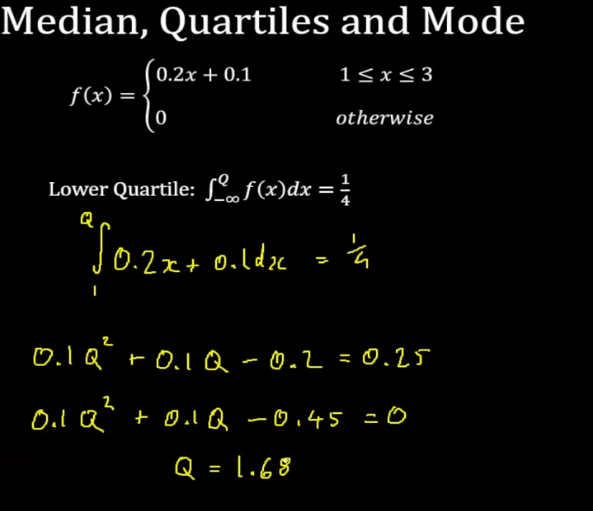 Median, Quartiles and Mode
f(x) = { 0.2x + 0.1    1 ≤ x ≤ 3
0    otherwise
Lower Quartile: ∫_{-∞}^{Q} f(x)dx = 1/4
∫_{1}^{Q} 0.2x + 0.1dx = 1/4
0.1Q² + 0.1Q - 0.2 = 0.25
0.1Q² + 0.1Q - 0.45 = 0
Q = 1.68